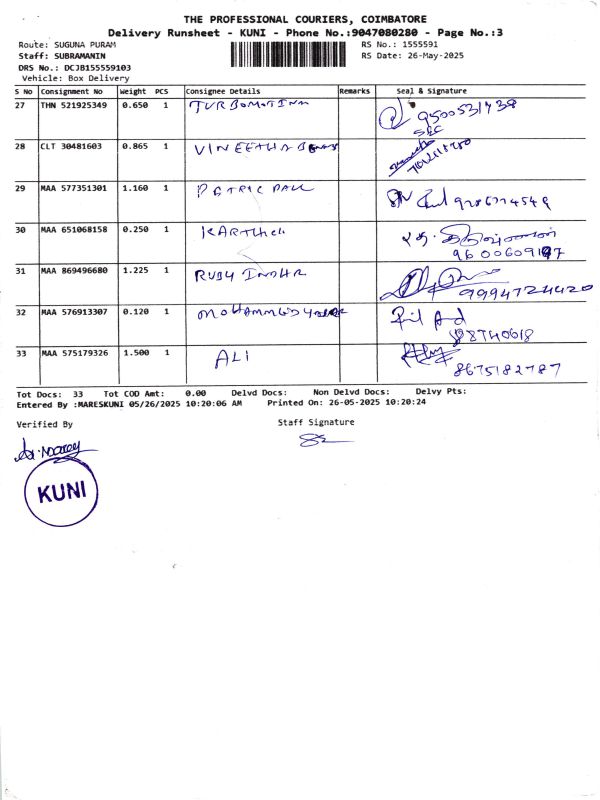 THE PROFESSIONAL COURIERS, COIMBATORE
Delivery Runsheet - KUNI - Phone No.:9047080280 - Page No.:3
Route: SUGUNA PURAM RS No.: 1555591
Staff: SUBRAMANIN RS Date: 26-May-2025
DRS No.: DCJB155559103
Vehicle: Box Delivery
S No Consignment No Weight PCS Consignee Details Remarks Seal & Signature
27 THN 521925349 0.650 1 9500531438
SEC
28 CLT 30481603 0.865 1 VINEETHA
29 MAA 577351301 1.160 1 PATRIC PAUL
30 MAA 651068158 0.250 1 KARTHICK
9600609147
31 MAA 869496680 1.225 1 RUBY
9994724420
32 MAA 576913307 0.120 1
33 MAA 575179326 1.500 1 ALI 8675182787
Tot Docs: 33 Tot COD Amt: 0.00 Delvd Docs: Non Delvd Docs: Delvy Pts:
Entered By :MARESKUNI 05/26/2025 10:20:06 AM Printed On: 26-05-2025 10:20:24
Verified By Staff Signature
KUNI